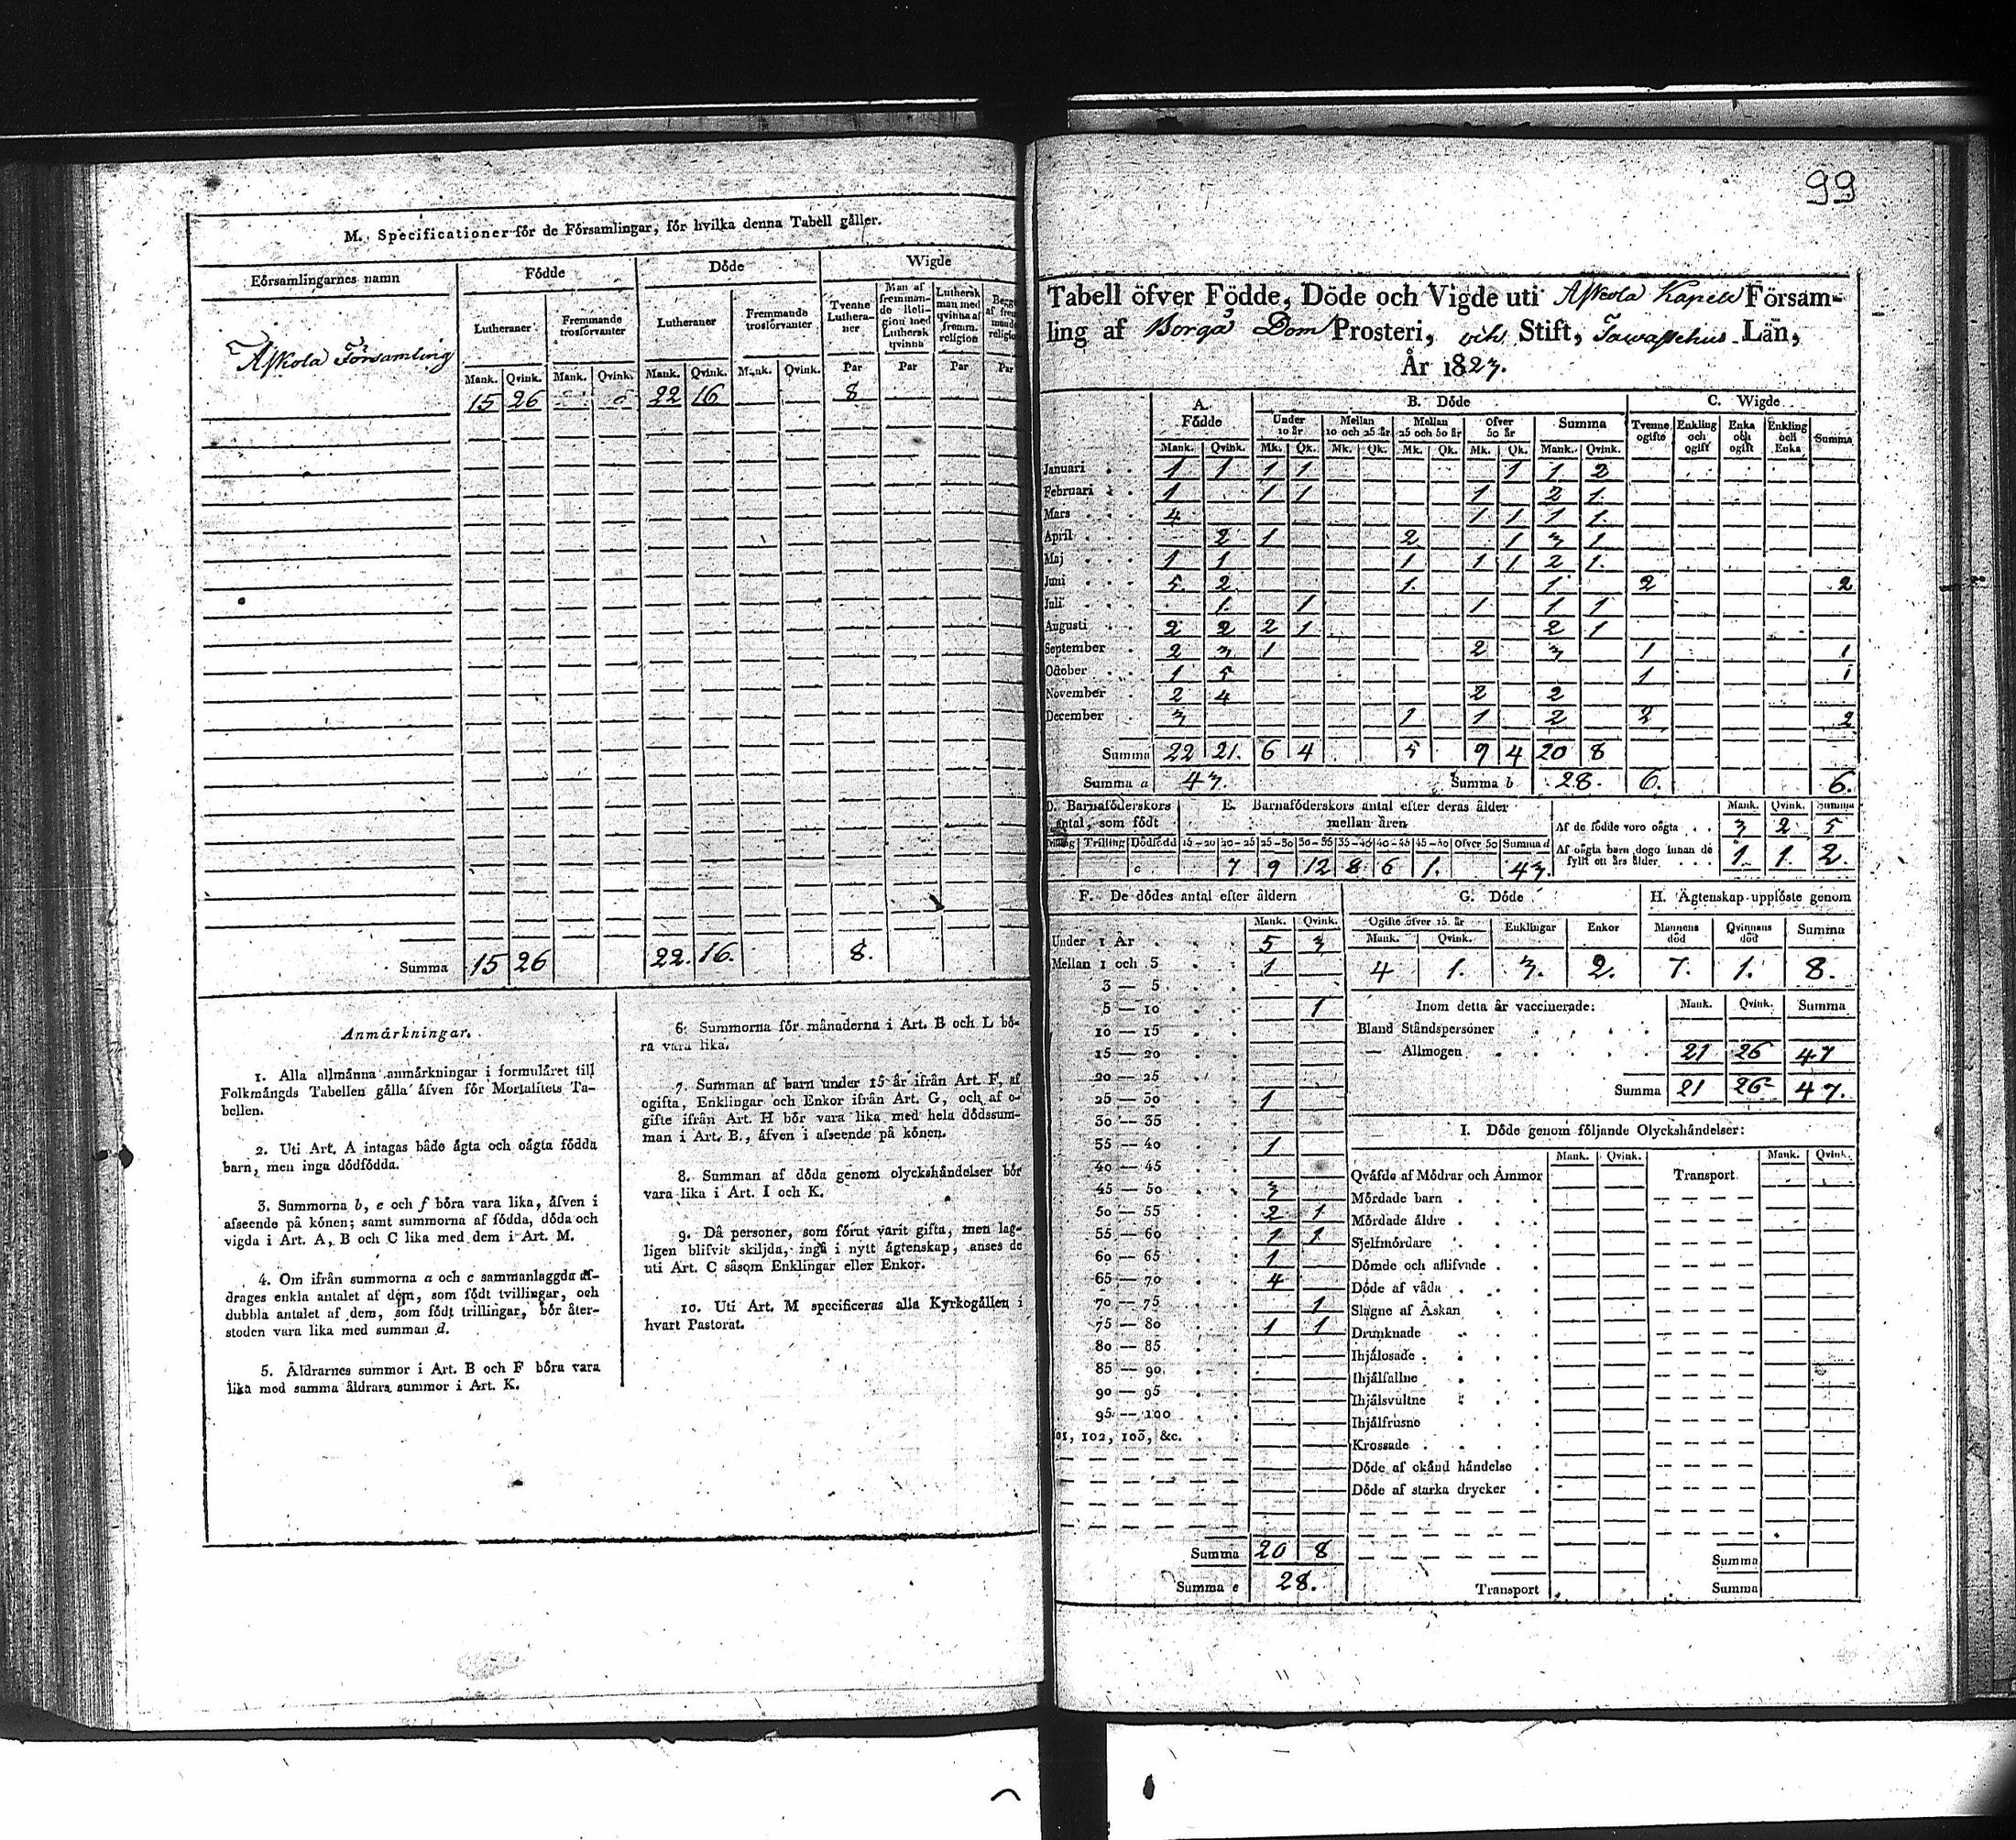 M. Specificationer för de Församlingar, för hvilka denna Tabell gäller.
Församlingarnes namn | Födde | Döde | Wigde
Lutheraner | Fremmande trosförvanter | Lutheraner | Fremmande trosförvanter | Tvenne Lutheraner | Man af fremmande Religion med Luthersk qvinna | Luthersk man med qvinna af fremm. religion
Mank. Qvink. Mank. Qvink. Mank. Qvink. Mank. Qvink. Par Par Par Par
Askola Församling 15 26 22 16 8
Summa 15 26 22. 16. 8.
Anmärkningar.
1. Alla allmänna anmärkningar i formuläret till
Folkmängds Tabellen gälla äfven för Mortalitets Ta-
bellen.
2. Uti Art. A intagas både ägta och oägta födda
barn, men inga dödfödda.
3. Summorna b, e och f böra vara lika, äfven i
afseende på könen; samt summorna af födda, döda och
vigda i Art. A, B och C lika med dem i Art. M.
4. Om ifrån summorna a och c sammanlaggda af-
drages enkla antalet af dem, som födt tvillingar, och
dubbla antalet af dem, som födt trillingar, bör åter-
stoden vara lika med summan d.
5. Åldrarnes summor i Art. B och F böra vara
lika med samma åldrars summor i Art. K.
6. Summorna för månaderna i Art. B och L bö-
ra vara lika.
7. Summan af barn under 15 år ifrån Art. F, af
ogifta, Enklingar och Enkor ifrån Art. G, och af o-
gifte ifrån Art. H bör vara lika med hela dödssum-
man i Art. B., äfven i afseende på könen.
8. Summan af döda genom olyckshändelser bör
vara lika i Art. I och K.
9. Då personer, som förut varit gifta, men lag-
ligen blifvit skiljda, ingå i nytt ägtenskap, anses de
uti Art. C såsom Enklingar eller Enkor.
10. Uti Art. M specificeras alla Kyrkogällen i
hvart Pastorat.
99
Tabell öfver Födde, Döde och Vigde uti Askola Kapells Försam-
ling af Borgå Dom Prosteri, och Stift, Tawastehus Län,
År 1823.
A. Födde | B. Döde | C. Wigde
Under 10 år | Mellan 10 och 25 år | Mellan 25 och 50 år | Öfver 50 år | Summa | Tvenne ogifte | Enkling och ogift | Enka och ogift | Enkling och Enka | Summa
Mank. Qvink. Mk. Qk. Mk. Qk. Mk. Qk. Mk. Qk. Mank. Qvink.
Januari 1 1 1 1 1 1 2
Februari 1 1 1 1 2 1.
Mars 4 1 1 1 1.
April 2 1 2 1 3 1
Maj 1 1 1 1 1 2 1.
Juni 5 2 1. 1 2 2
Juli 1 1 1 1 1
Augusti 2 2 2 1 2 1
September 2 3 1 2 3 1 1
October 1 5 1 1
November 2 4 2 2
December 3 1 1 2 2 2
Summa 22 21. 6 4 5 9 4 20 8
Summa a 43. Summa b 28. 6. 6.
D. Barnaföderskors antal, som födt
Trilling Dödfödd
E. Barnaföderskors antal efter deras ålder
mellan åren
15-20 20-25 25-30 30-35 35-40 40-45 45-50 Öfver 50 Summa d
7 9 12 8 6 1. 43.
Mank. Qvink. Summa
Af de födde voro oägta 3 2 5
Af oägta barn dogo innan de
fyllt ett års ålder 1. 1. 2.
F. De dödes antal efter åldern
Mank. Qvink.
Under 1 År 5 3
Mellan 1 och 5 1
3 — 5
5 — 10 1
10 — 15
15 — 20
20 — 25
25 — 30 1
30 — 35
35 — 40 1
40 — 45
45 — 50 3
50 — 55 2 1
55 — 60 1 1
60 — 65 1
65 — 70 4
70 — 75 1
75 — 80 1 1
80 — 85
85 — 90
90 — 95
95 — 100
101, 102, 103, &c.
Summa 20 8
Summa e 28.
G. Döde
Ogifte öfver 15 år | Enklingar | Enkor
Mank. Qvink.
4 1. 3. 2.
H. Ägtenskap upplöste genom
Mannens död | Qvinnans död | Summa
7. 1. 8.
Inom detta år vaccinerade: Mank. Qvink. Summa
Bland Ståndspersoner
— Allmogen 21 26 47
Summa 21 26 47.
I. Döde genom följande Olyckshändelser:
Mank. Qvink. Mank. Qvink.
Qväfde af Mödrar och Ammor Transport
Mördade barn
Mördade äldre
Sjelfmördare
Dömde och aflifvade
Döde af våda
Slagne af Åskan
Drunknade
Ihjälosade
Ihjälfallne
Ihjälsvultne
Ihjälfrusne
Krossade
Döde af okänd händelse
Döde af starka drycker
Summa
Transport Summa